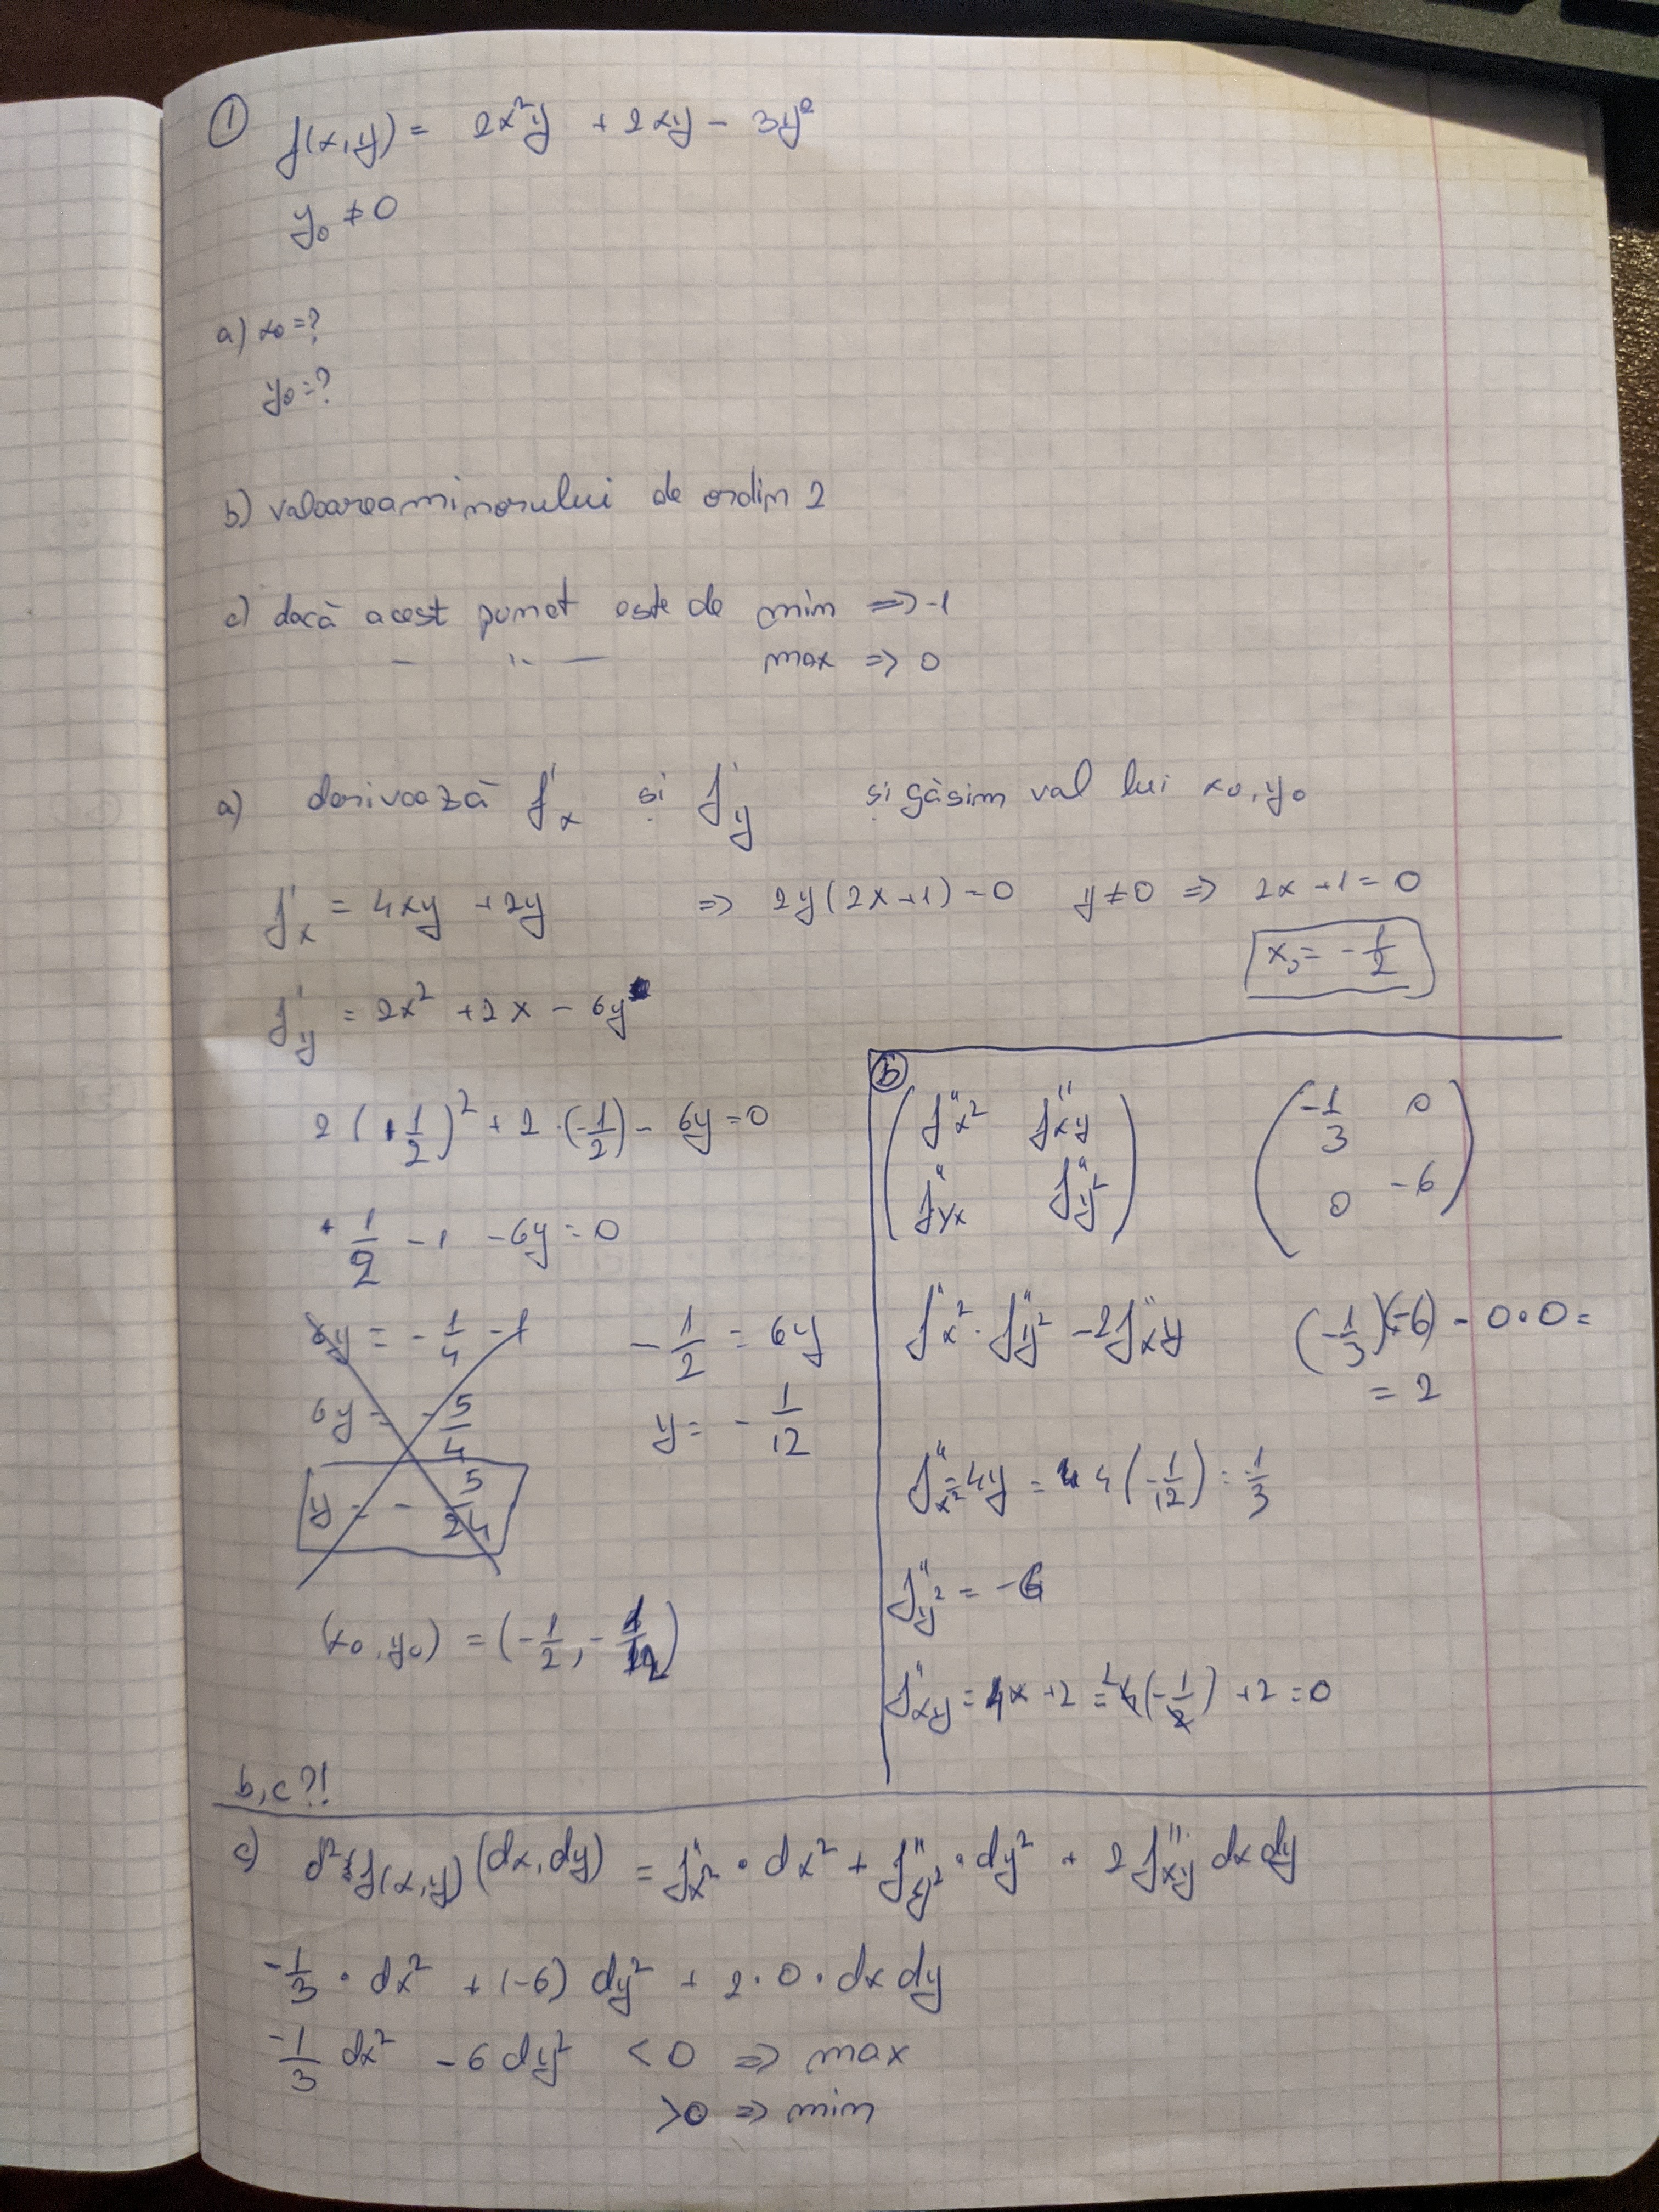 ① f(x,y) = 2x²y + 2xy - 3y²
y₀ ≠ 0
a) x₀ = ?
y₀ = ?
b) valoarea minorului de ordin 2
c) dacă acest punct este de min => -1
— " — max => 0
a) derivează f'x și f'y și găsim val lui x₀, y₀
f'x = 4xy + 2y => 2y(2x+1) = 0 y ≠ 0 => 2x + 1 = 0
x₀ = -1/2
f'y = 2x² + 2x - 6y
2(+1/2)² + 2·(-1/2) - 6y = 0
+1/2 - 1 - 6y = 0
6y = -1/4 - 1
6y = -5/4
y = -5/24
-1/2 = 6y
y = -1/12
(x₀, y₀) = (-1/2, -1/12)
b, c ?!
ⓑ
(f''x² f''xy) (-1/3 0)
(f''yx f''y²) (0 -6)
f''x² · f''y² - 2f''xy (-1/3)(-6) - 0·0 =
= 2
f''x² = 4y = 4(-1/12) = -1/3
f''y² = -6
f''xy = 4x + 2 = 4(-1/2) + 2 = 0
c) d²f(x,y)(dx,dy) = f''x² · dx² + f''y² · dy² + 2f''xy dxdy
-1/3 · dx² + (-6) dy² + 2·0·dxdy
-1/3 dx² - 6dy² < 0 => max
>0 => min